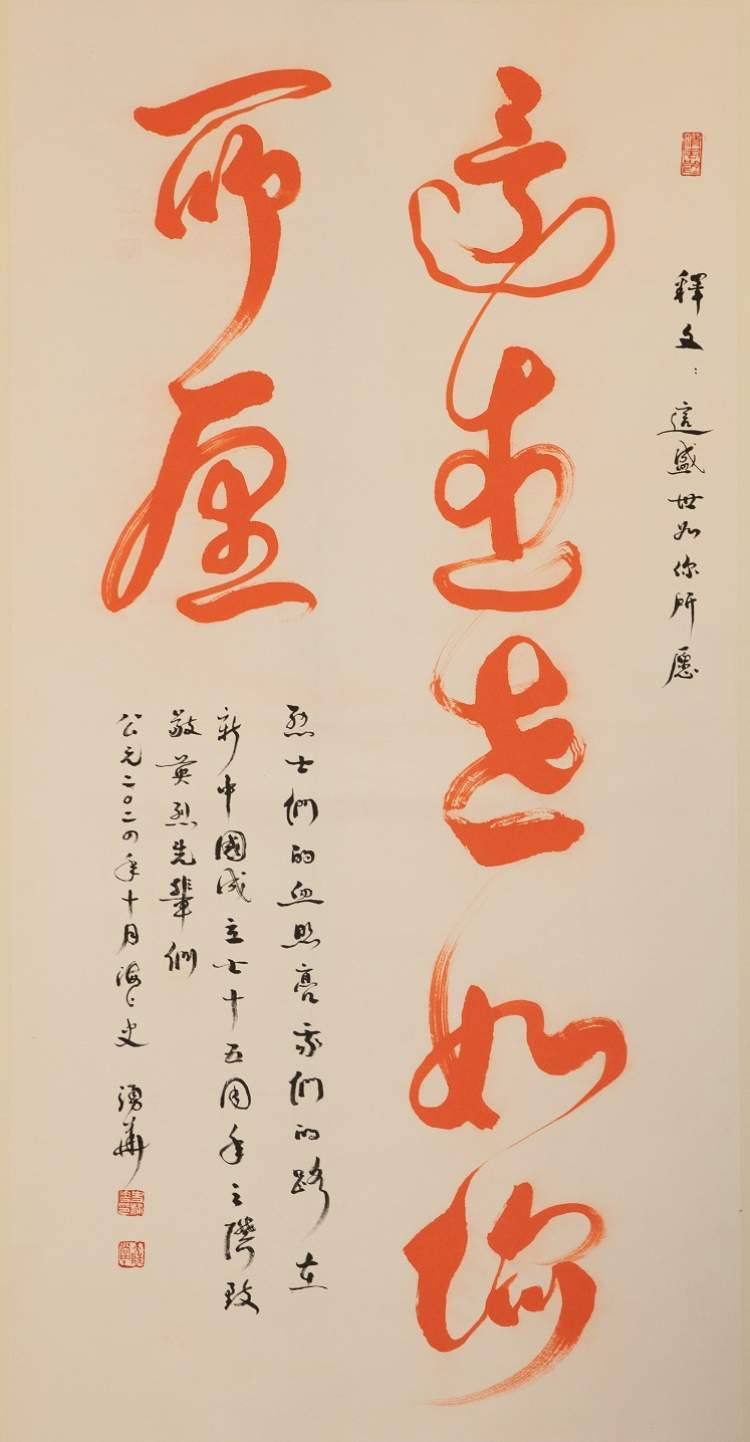 釋文：這盛世如你所愿
這盛世如你
所愿
烈士們的血照亮我們的路在
新中國成立七十五周年之際致
敬英烈先輩們
公元二〇二四年十月海上史湧華